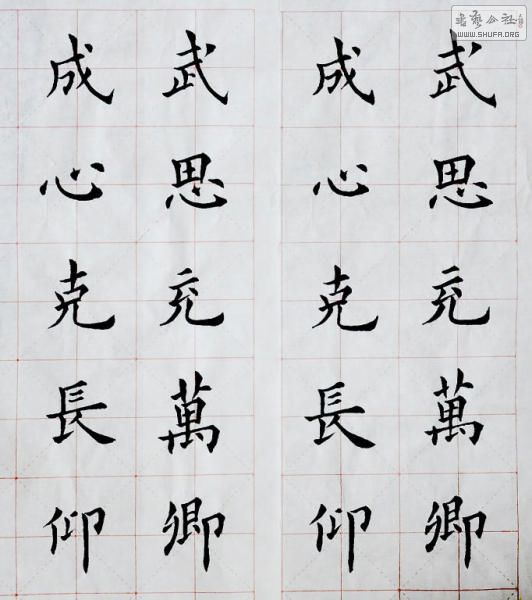 武思充萬卿
成心克長仰
武思充萬卿
成心克長仰
書藝公社
www.SHUFA.ORG